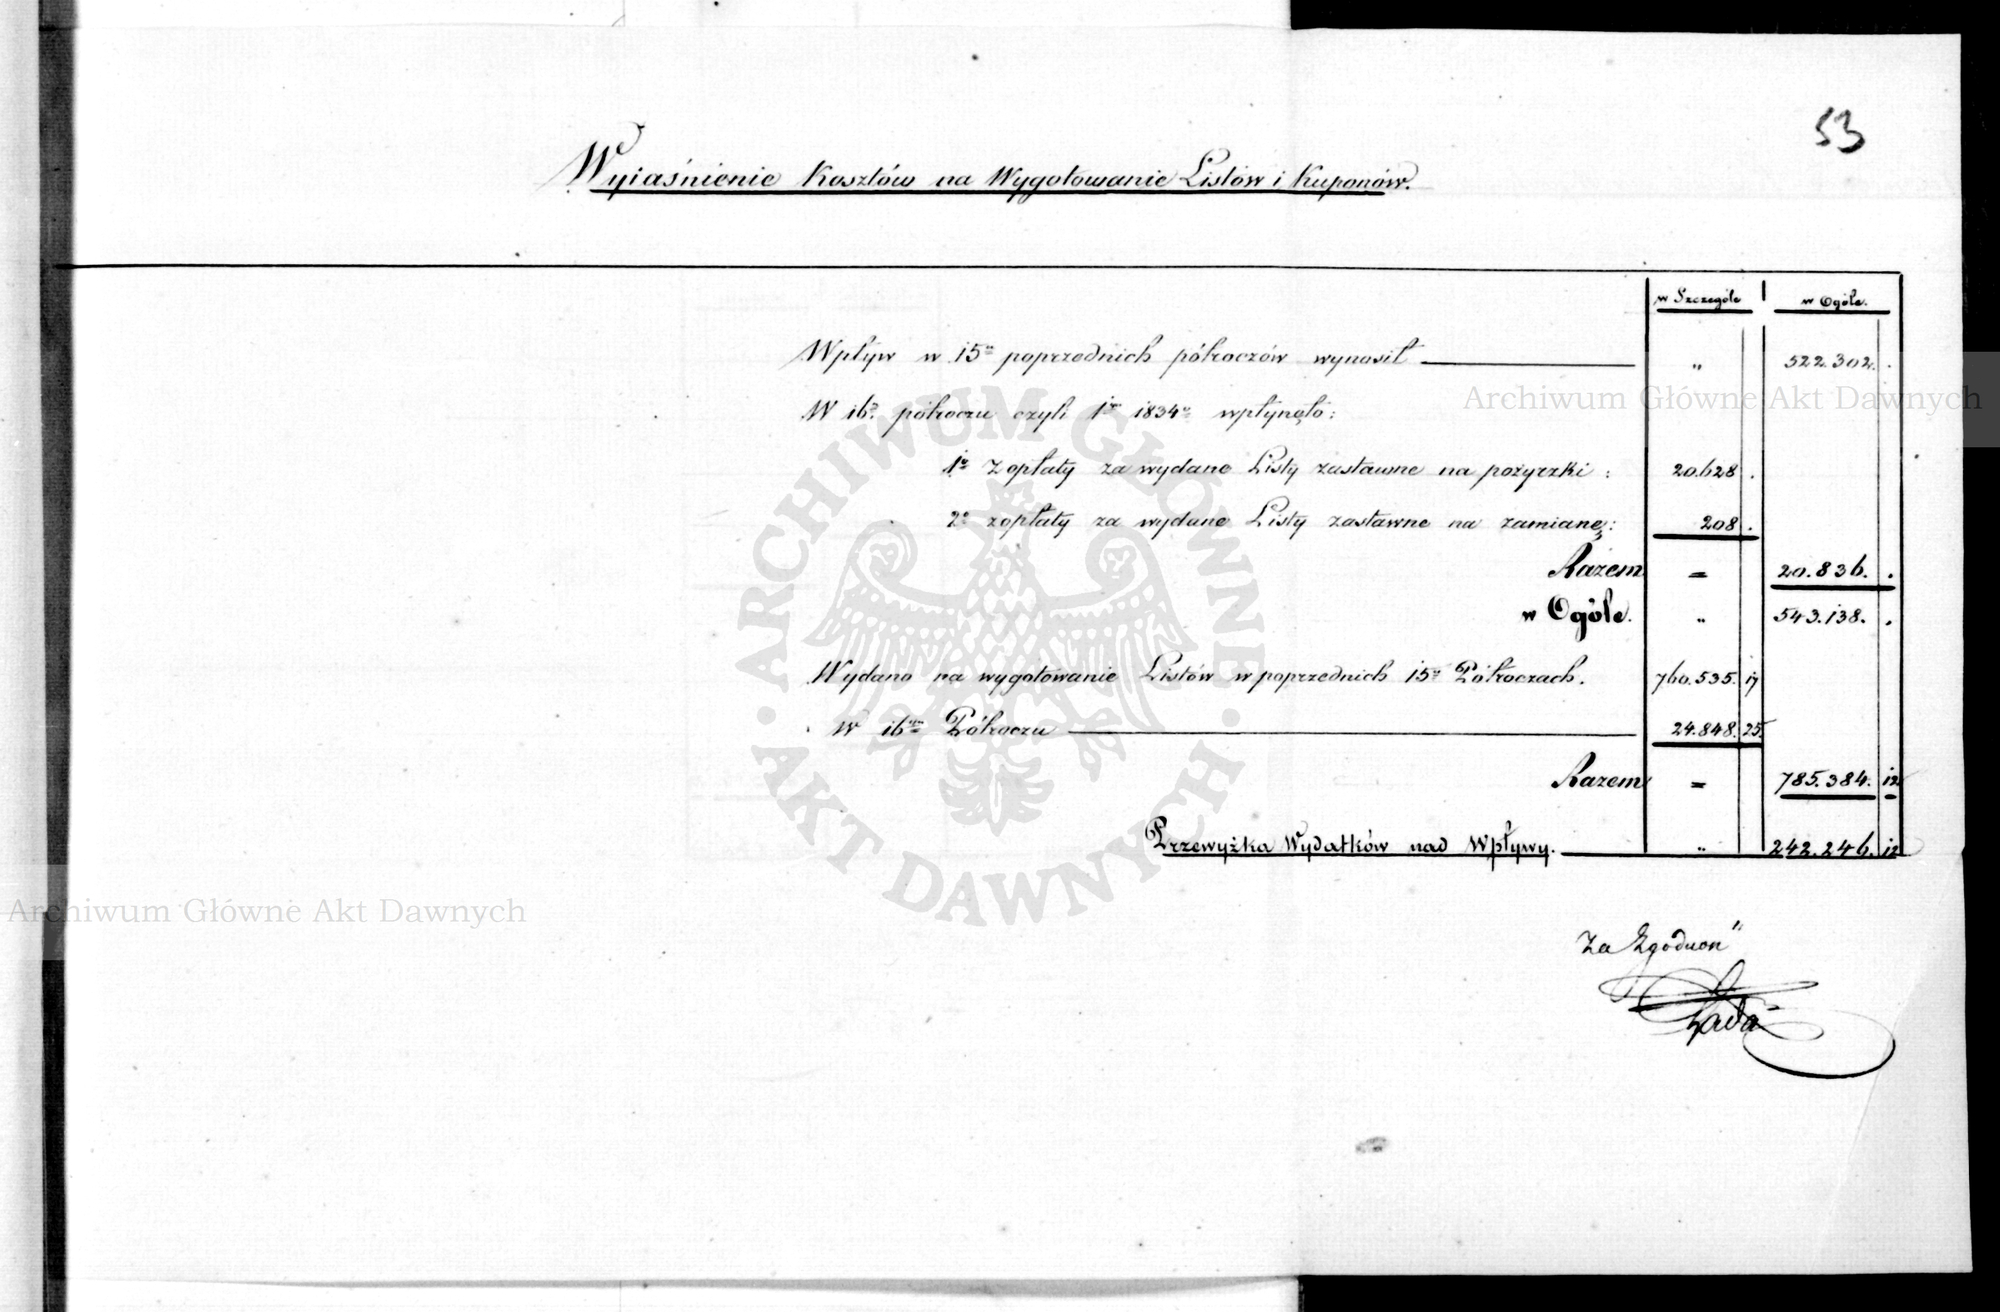 53
Wyiaśnienie Kosztów na Wygotowanie Listów i Kuponów.
w Szczególe w Ogóle.
Wpływ w 15u poprzednich półroczów wynosił " 522.302. .
W 16m półroczu czyli 1m 1834o wpłynęło:
1o Z opłaty za wydane Listy zastawne na pożyczki : 20.628 .
2o z opłaty za wydane Listy zastawne na zamianę: 208 .
Razem = 20.836. .
w Ogóle. " 543.138. .
Wydano na wygotowanie Listów w poprzednich 15u Półroczach. 760.535. 17
W 16tym Półroczu 24.848. 25.
Razem = 785.384. 12
Przewyżka Wydatków nad Wpływy. " 242.246. 12
Za Zgodność
Archiwum Główne Akt Dawnych
Archiwum Główne Akt Dawnych
ARCHIWUM GŁÓWNE
AKT DAWNYCH